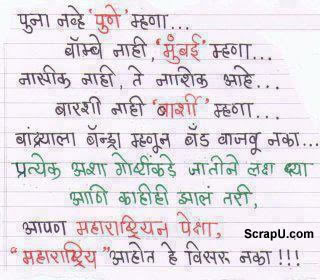 पुना नव्हे 'पुणे' म्हणा...
बॉम्बे नाही, 'मुंबई' म्हणा...
नास्पीक नाही, ते नाशिक आहे...
बारशी नाही 'बार्शी' म्हणा...
बांद्र्याला बॅन्ड्रा म्हणून बँड वाजवू नका...
प्रत्येक अशा गोष्टींकडे जातीने लक्ष द्या
आणि काहीही झालं तरी,
आपण महाराष्ट्रियन पेक्षा,
"महाराष्ट्रिय" आहोत हे विसरू नका!!!
ScrapU.com